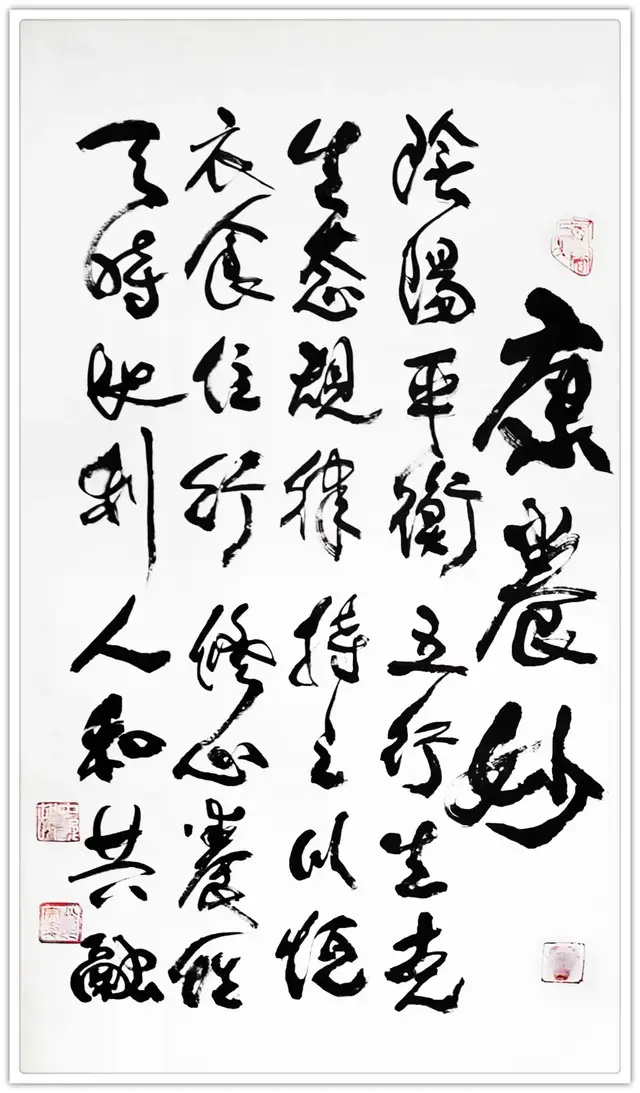 康養妙
陰陽平衡五行生克
生态規律持之以恒
衣食住行修心養性
天時地利人和共融